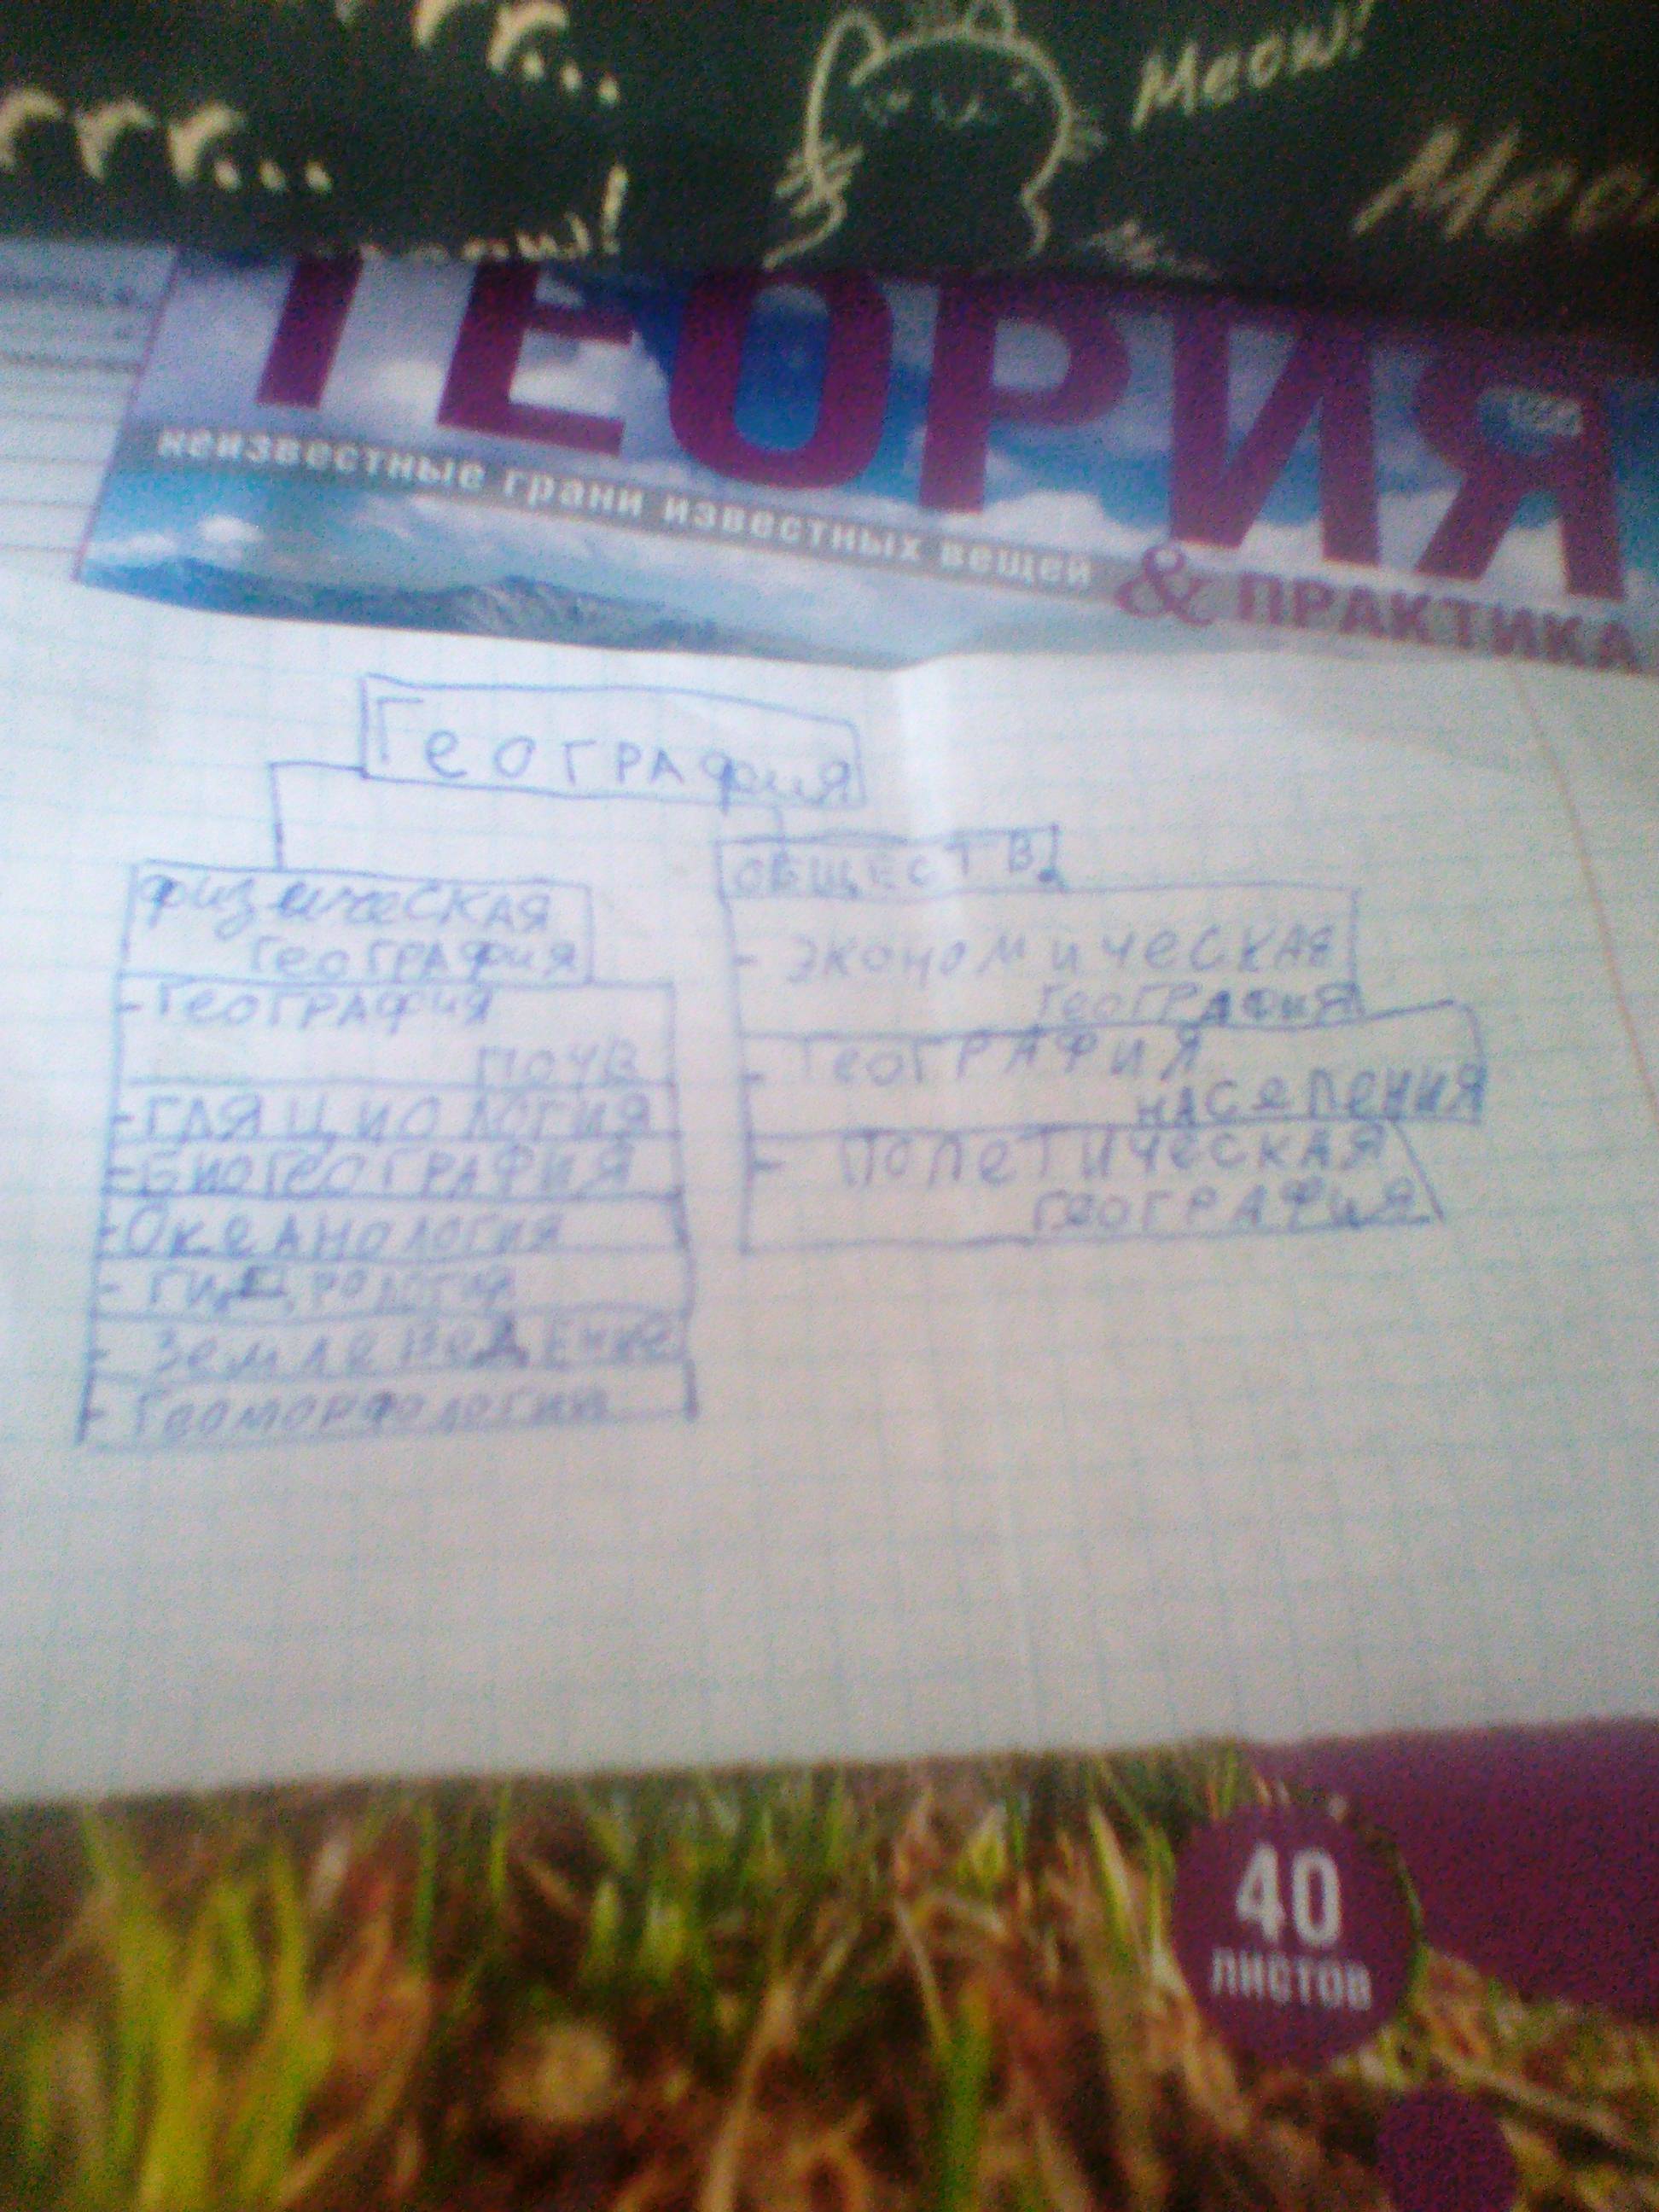 rr...
Meow!
rrr...
ТЕОРИЯ
неизвестные грани известных вещей
& ПРАКТИКА
География
Физическая
География
- География
почв
- гляциология
- Биогеография
- Океанология
- гидрология
- Землеведение
- Геоморфологии
обществ
- экономическая
география
- География
населения
- Полетическая
география
40
ЛИСТОВ